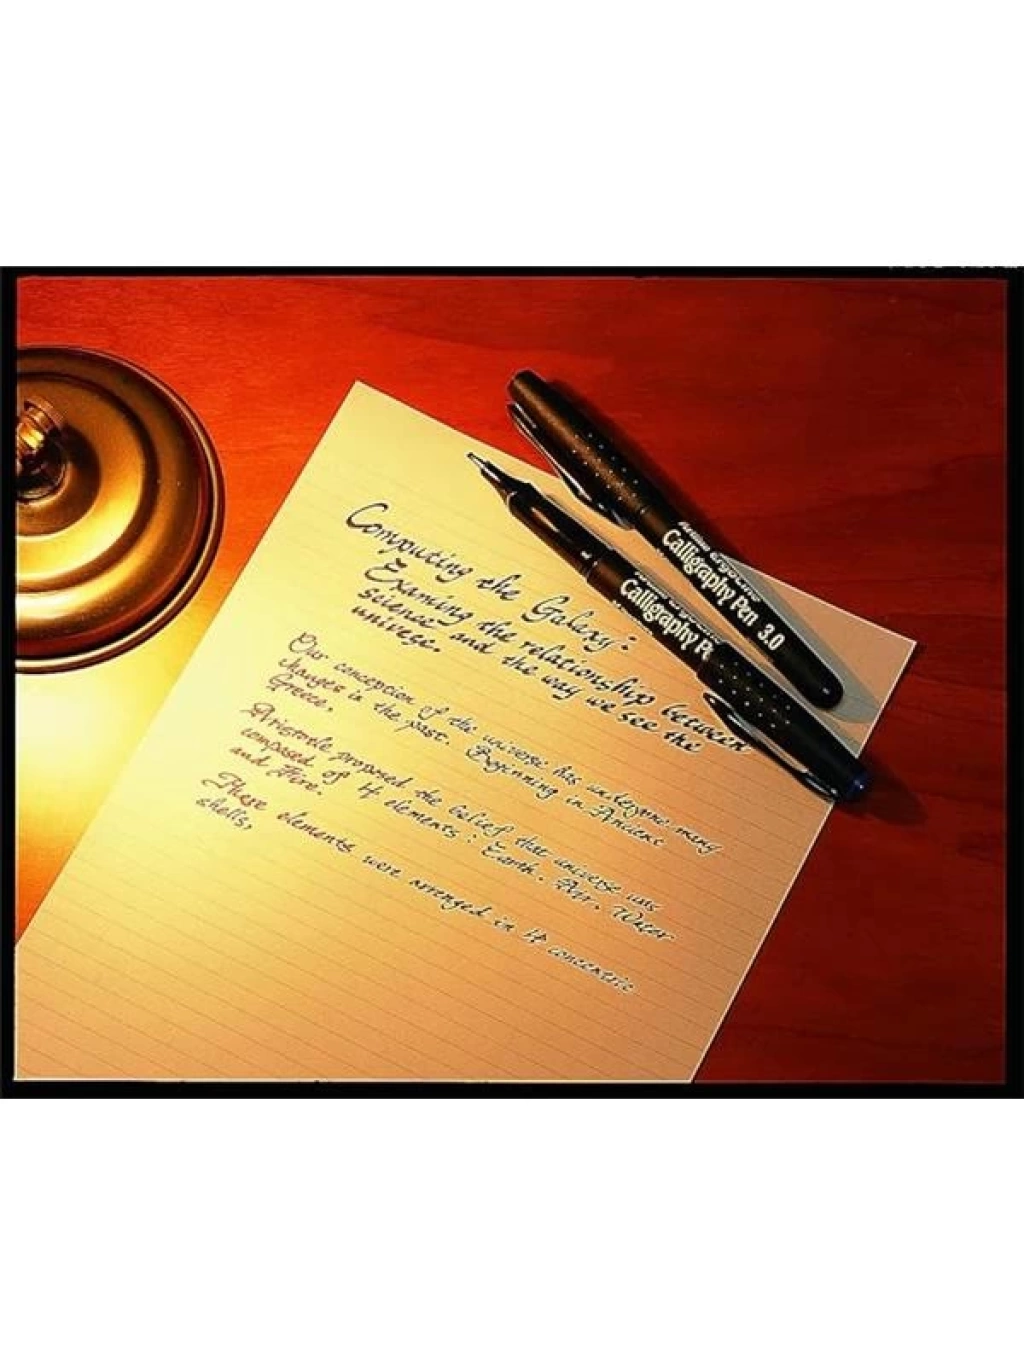 Computing the Galaxy:
Examing the relationship between
science and the way we see the
univese.
Our conception of the universe has undergone many
changes in the past. Beginning in Ancient
Greece,
Aristotle proposed the belief that universe was
composed of 4 elements: Earth, Air, Water
and Fire.
These elements were arranged in 4 concentric
shells,
Calligraphy Pen 3.0
Calligraphy